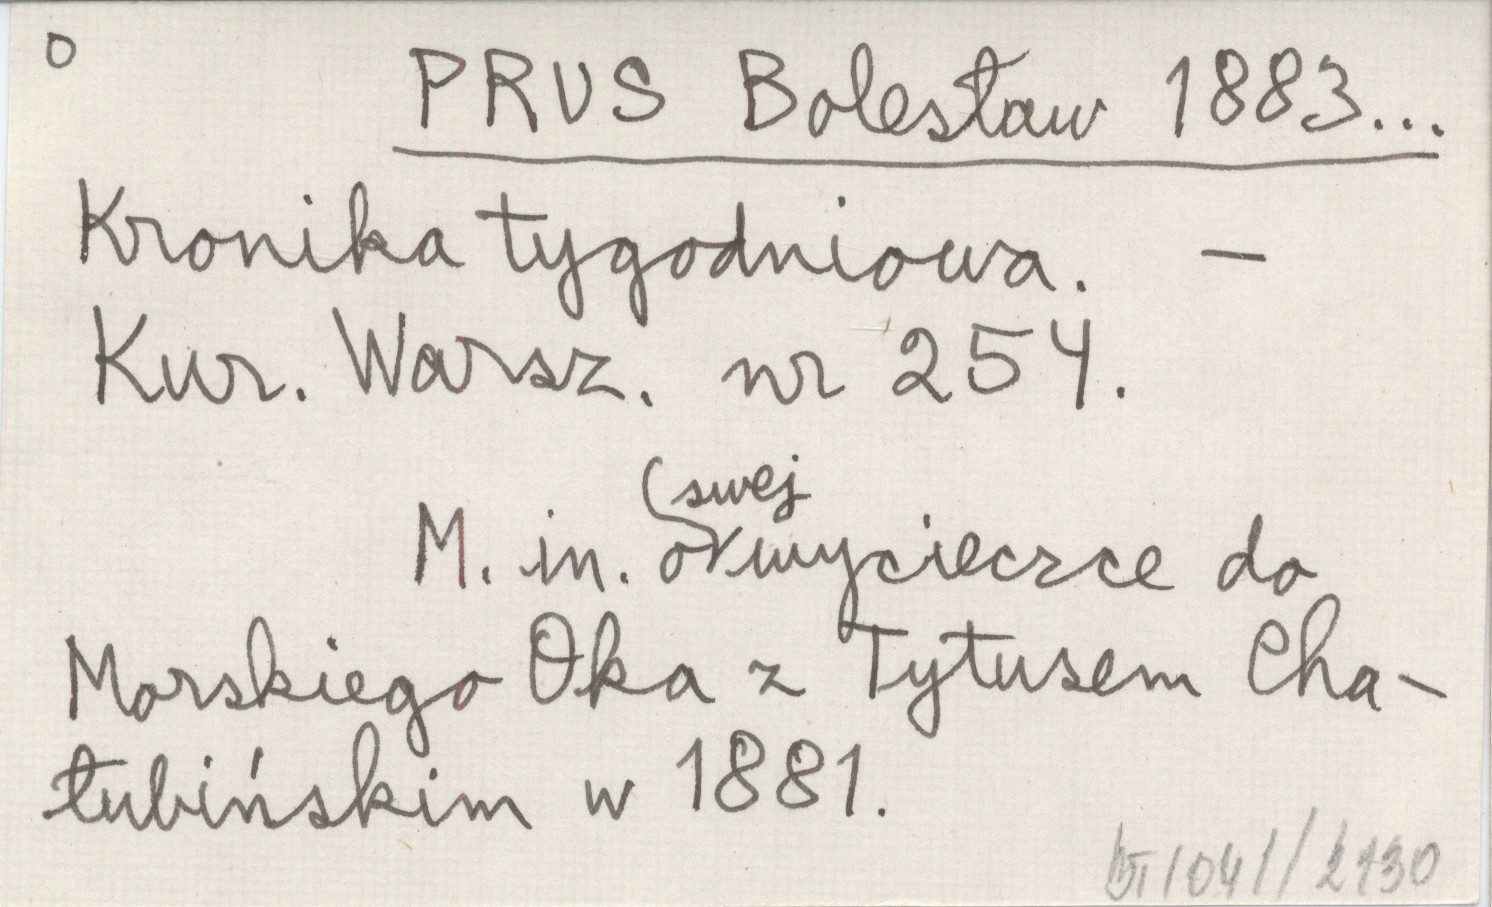 o
PRUS Bolesław 1883...
Kronika tygodniowa. –
Kur. Warsz. nr 254.
swej
M. in. o wycieczce do
Morskiego Oka z Tytusem Cha-
łubińskim w 1881.
/041/2130